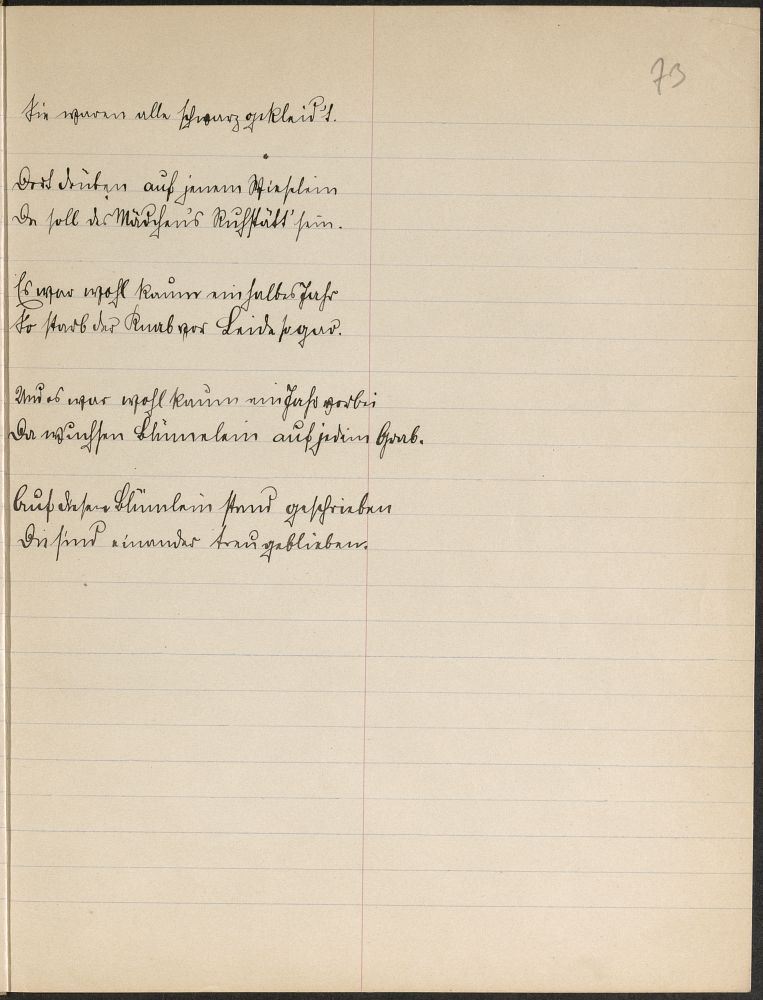 73
Sie waren alle schwarz gekleid't.
Dort drüben auf jenem Wieselein
Da soll des Mädchen's Ruhstätt' sein.
Es war wohl kaum ein halbes Jahr
So starb der Knab vor Leide sogar.
Und es war wohl kaum ein Jahr vorbei
Da wuchsen Blümelein auf jedem Grab.
Auf diesen Blümlein stand geschrieben
Die sind einander treu geblieben.